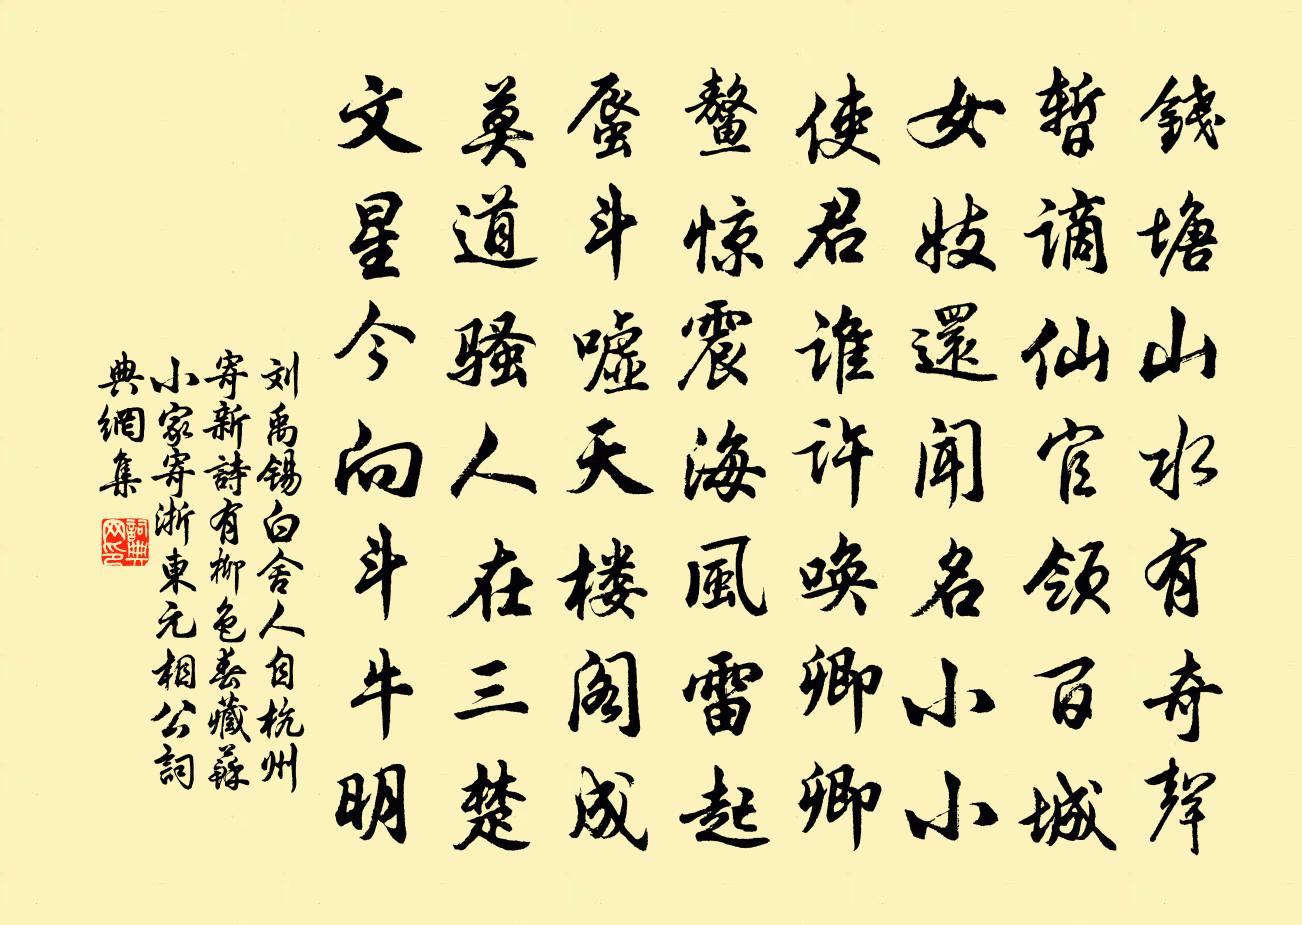 錢塘山水有奇聲
暫謫仙官領百城
女妓還聞名小小
使君谁許唤卿卿
鰲惊震海風雷起
蜃斗嘘天楼阁成
莫道骚人在三楚
文星今向斗牛明
刘禹锡白舍人自杭州
寄新詩有柳色春藏蘇
小家寄浙東元相公詞
典網集
詞典
网印